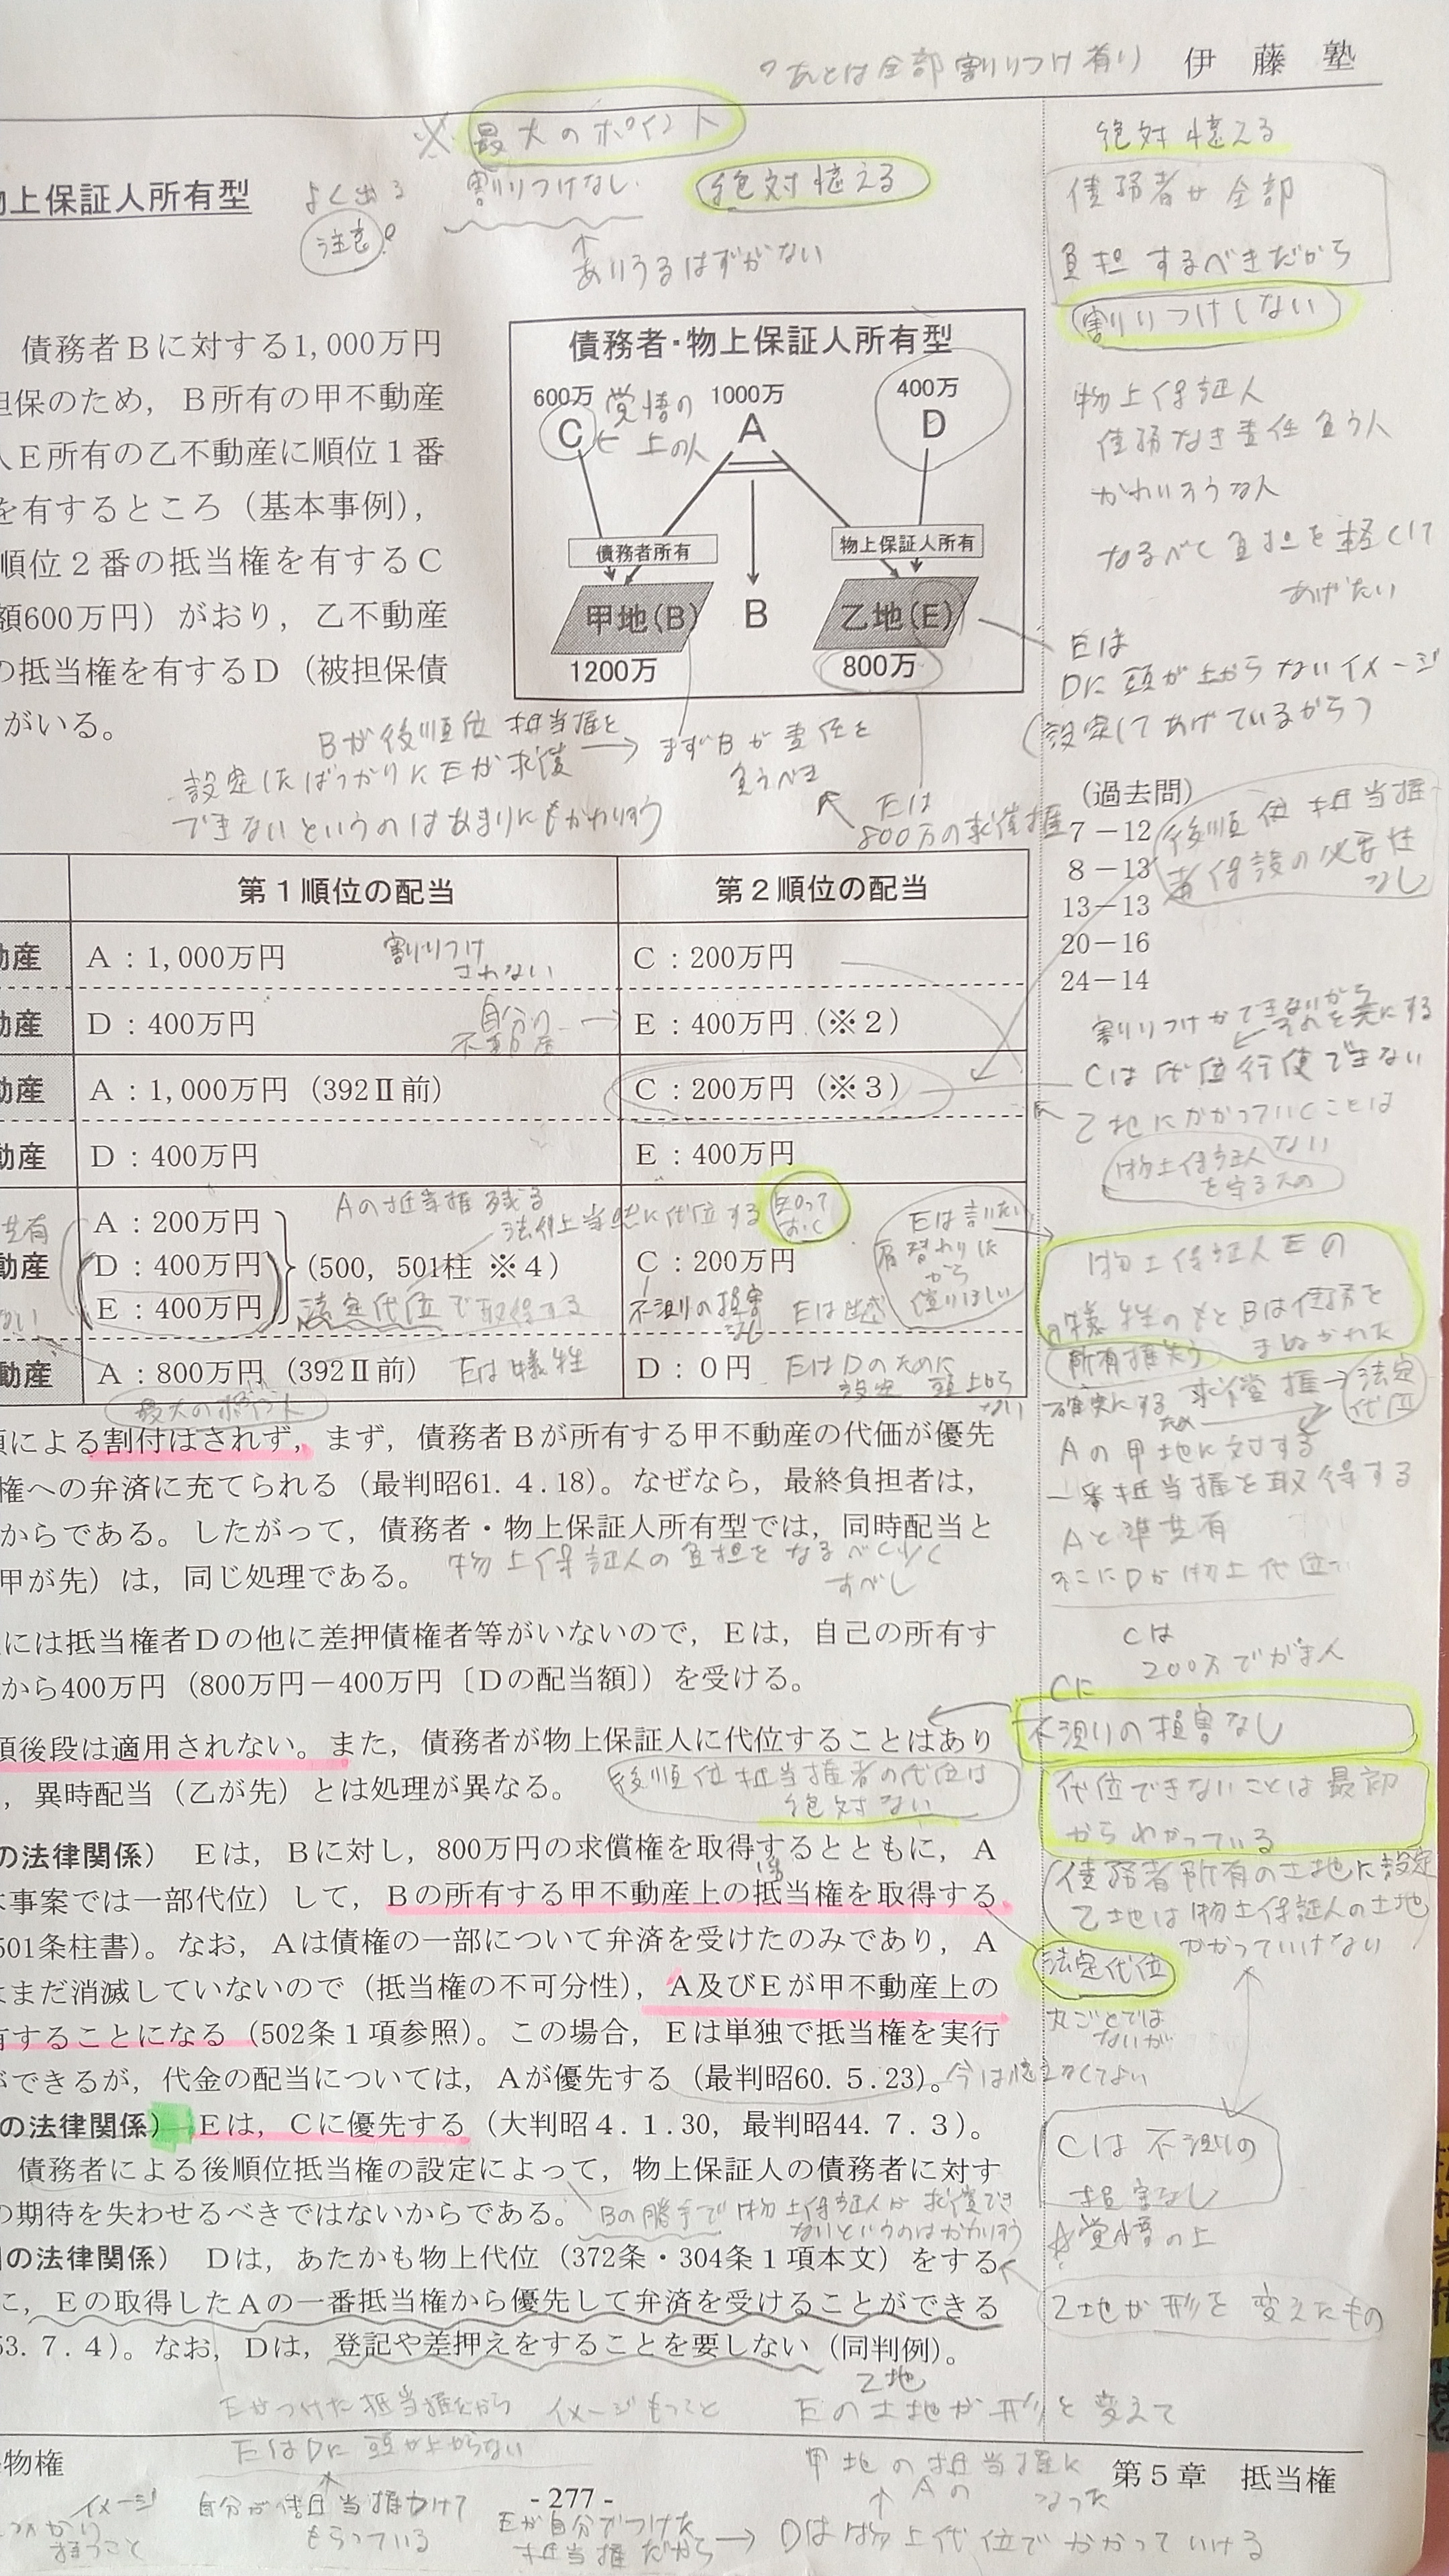 あとは全部割りつけ有り 伊藤塾
※ 最大のポイント
絶対憶える
物上保証人所有型 よく出る 割りつけなし 絶対憶える
注意
ありうるはずがない
債務者が全部
負担するべきだから
割りつけしない
債務者Bに対する1,000万円
担保のため，B所有の甲不動産
E所有の乙不動産に順位1番
を有するところ（基本事例），
順位2番の抵当権を有するC
額600万円）がおり，乙不動産
の抵当権を有するD（被担保債
がいる。
債務者・物上保証人所有型
600万 1000万 400万
C A D
覚悟の
上の人
債務者所有 物上保証人所有
甲地(B) B 乙地(E)
1200万 800万
物上保証人
債務なき責任負う人
かわいそうな人
なるべく負担を軽くして
あげたい
Eは
Dに頭が上がらないイメージ
(設定してあげているから)
Bが後順位抵当権を → まずBが責任を
設定したばっかりにEが求償 負うべき
できないというのはあまりにもかわいそう
Eは
800万の求償権
（過去問）
7－12
8－13
13－13
20－16
24－14
後順位抵当権
者保護の必要性
なし
第1順位の配当 第2順位の配当
動産 A：1,000万円 割りつけ されない C：200万円
動産 D：400万円 自分の 不動産 → E：400万円（※2）
動産 A：1,000万円（392Ⅱ前） C：200万円（※3）
動産 D：400万円 E：400万円
共有 A：200万円 Aの抵当権残る
法律上当然に代位する 知って おく
動産 D：400万円 （500，501柱 ※4） C：200万円
E：400万円 法定代位で取得する 不測の損害 なし
Eは言いたい
肩替わりした
から
動産 A：800万円（392Ⅱ前） Eは犠牲 D：0円 EはDのために
設定 頭上がら
ない
最大のポイント
Cは代位行使できない
乙地にかかっていくことは
ない
物上保証人
を守るため
物上保証人Eの
犠牲のもとBは債務を
まぬかれた
所有権失う
確実にする ため 求償権 → 法定 代位
Aの甲地に対する
一番抵当権を取得する
Aと準共有
そこにDが物上代位
項による割付はされず，まず，債務者Bが所有する甲不動産の代価が優先
権への弁済に充てられる（最判昭61.4.18）。なぜなら，最終負担者は，
からである。したがって，債務者・物上保証人所有型では，同時配当と
甲が先）は，同じ処理である。
物上保証人の負担をなるべく少く
すべし
には抵当権者Dの他に差押債権者等がいないので，Eは，自己の所有す
から400万円（800万円－400万円〔Dの配当額〕）を受ける。
Cは
200万でがまん
Cに
不測の損害なし
項後段は適用されない。また，債務者が物上保証人に代位することはあり
，異時配当（乙が先）とは処理が異なる。
後順位抵当権者の代位は
絶対ない
代位できないことは最初
からわかっている
債務者所有の土地に設定
乙地は物上保証人の土地
かかっていけない
の法律関係） Eは，Bに対し，800万円の求償権を取得するとともに，A
本事案では一部代位）して，Bの所有する甲不動産上の抵当権を取得する
501条柱書）。なお，Aは債権の一部について弁済を受けたのみであり，A
はまだ消滅していないので（抵当権の不可分性），A及びEが甲不動産上の
有することになる（502条1項参照）。この場合，Eは単独で抵当権を実行
ができるが，代金の配当については，Aが優先する（最判昭60.5.23）。今は憶えなくてよい
法定代位
丸ごとでは
ないが
の法律関係） Eは，Cに優先する（大判昭4.1.30，最判昭44.7.3）。
債務者による後順位抵当権の設定によって，物上保証人の債務者に対す
の期待を失わせるべきではないからである。
Bの勝手で物上保証人が求償でき
ないというのはかわいそう
Cは不測の
損害なし
覚悟の上
の法律関係） Dは，あたかも物上代位（372条・304条1項本文）をする
に，Eの取得したAの一番抵当権から優先して弁済を受けることができる
53.7.4）。なお，Dは，登記や差押えをすることを要しない（同判例）。
乙地が形を変えたもの
乙地
Eの土地が形を変えて
Eがつけた抵当権だから イメージもつこと
EはDに頭が上がらない
甲地の抵当権に
Aの なった
物権 - 277 - 第5章 抵当権
イメージ
自分が抵当権つけて
もらっている
Eが自分でつけた
抵当権だから → Dは物上代位でかかっていける